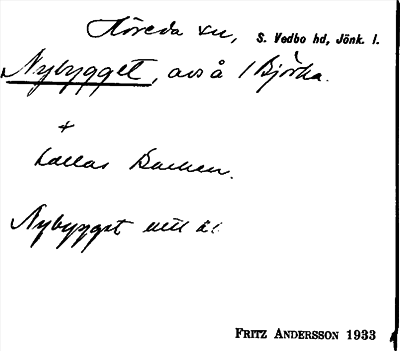 Höreda sn, S. Vedbo hd, Jönk. l.
Nybygget, avs å 1 Björka.
+
kallas Backen.
Nybygget
FRITZ ANDERSSON 1933